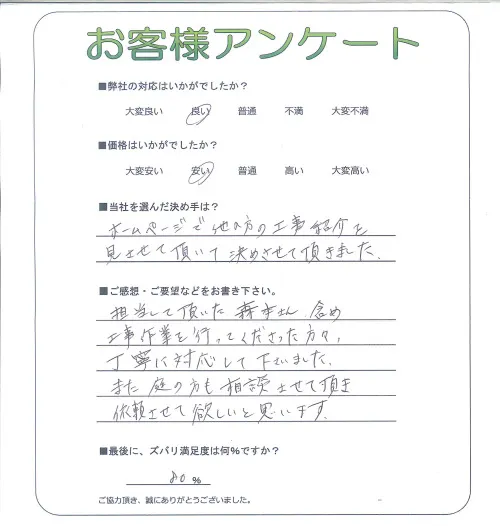 お客様アンケート
■弊社の対応はいかがでしたか？
大変良い 良い 普通 不満 大変不満
■価格はいかがでしたか？
大変安い 安い 普通 高い 大変高い
■当社を選んだ決め手は？
ホームページで他の方の工事紹介を
見させて頂いて決めさせて頂きました.
■ご感想・ご要望などをお書き下さい。
担当して頂いた森本さん 含め
工事作業を行ってくださった方々,
丁寧に対応して下さいました.
また庭の方も相談させて頂き
依頼させて欲しいと思います.
■最後に、ズバリ満足度は何％ですか？
80 %
ご協力頂き、誠にありがとうございました。